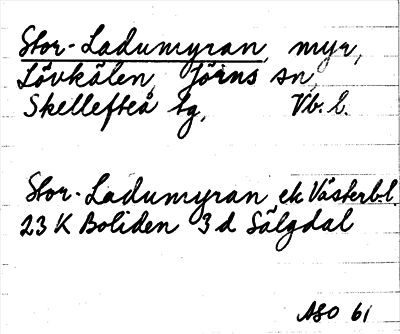 Stor-Ladumyran, myr,
Lövkälen, Jörns sn,
Skellefteå tg, Vb. l.
Stor-Ladumyran ek Västerb.l.
23 K Boliden 3 d Sälgdal
ASO 61